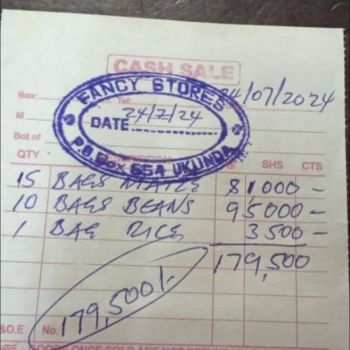 CASH SALE
FANCY STORES
Box: Tel: 24/07/2024
M DATE 24/7/24
Bot of P.O. Box 654 UKUNDA
QTY @ SHS CTS
15 BAGS MAIZE 81000 -
10 BAGS BEANS 95000 -
1 BAG RICE 3500 -
179,500
179,500/-
&O.E No.
GOODS ONCE SOLD ARE NOT